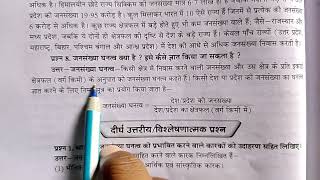 अधिक है। हिमालयीन छोटे राज्य सिक्किम की जनसंख्या मात्र 6.7 लाख है
प्रदेश की जनसंख्या 19.95 करोड़ है। कुल मिलाकर भारत में
6 करोड़ से अधिक है। कुछ राज्य क्षेत्रफल में बड़े होते हैं जैसे—राजस्थान और
मध्य प्रदेश, जबकि ये दोनों ही क्षेत्रफल की दृष्टि से देश के बड़े राज्य हैं। केवल पाँच राज्यों (उत्तर प्रदेश,
महाराष्ट्र, बिहार, पश्चिम बंगाल और आन्ध्र प्रदेश) में देश की आधे से अधिक जनसंख्या निवास करती है।
प्रश्न 8. जनसंख्या घनत्व क्या है ? इसे कैसे ज्ञात किया जा सकता है ?
उत्तर—जनसंख्या घनत्व—किसी क्षेत्र में निवास करने वाली जनसंख्या और उस क्षेत्र के प्रति इकाई
क्षेत्रफल (वर्ग किमी.) के अनुपात को जनसंख्या घनत्व कहते हैं। किसी देश या प्रदेश की जनसंख्या का घनत्व
ज्ञात करने के लिए सूत्र का प्रयोग किया जाता है—
देश/प्रदेश की जनसंख्या
जनसंख्या घनत्व =
देश/प्रदेश का क्षेत्रफल (वर्ग किमी में)
दीर्घ उत्तरीय/विश्लेषणात्मक प्रश्न
प्रश्न 1. जनसंख्या घनत्व को प्रभावित करने वाले कारकों को उदाहरण सहित लिखिए।
उत्तर— करने वाले कारक निम्नलिखित हैं—
(1) आर्थिक एवं सांस्कृतिक कारक।